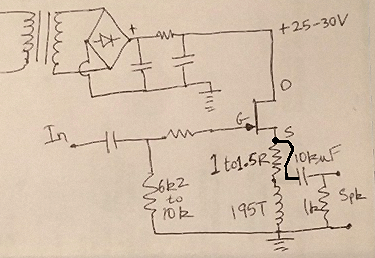 +
+25-30V
D
In
G
S
1 to 1.5R
10kuF
6k2
to
10k
195T
1k
Spk